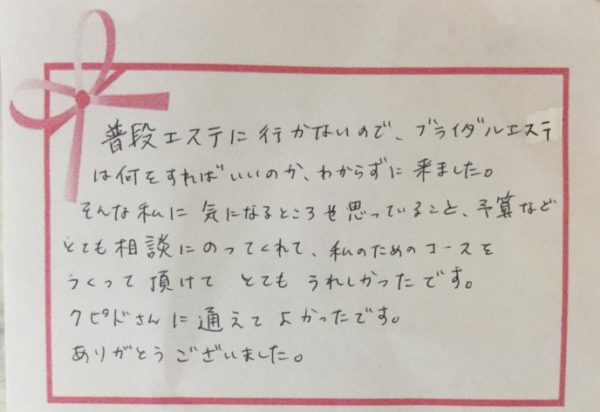 普段エステに行かないので、ブライダルエステ
は何をすればいいのか、わからずに来ました。
そんな私に気になるところや思っていること、予算など
とても相談にのってくれて、私のためのコースを
つくって頂けてとてもうれしかったです。
クピドさんに通えてよかったです。
ありがとうございました。